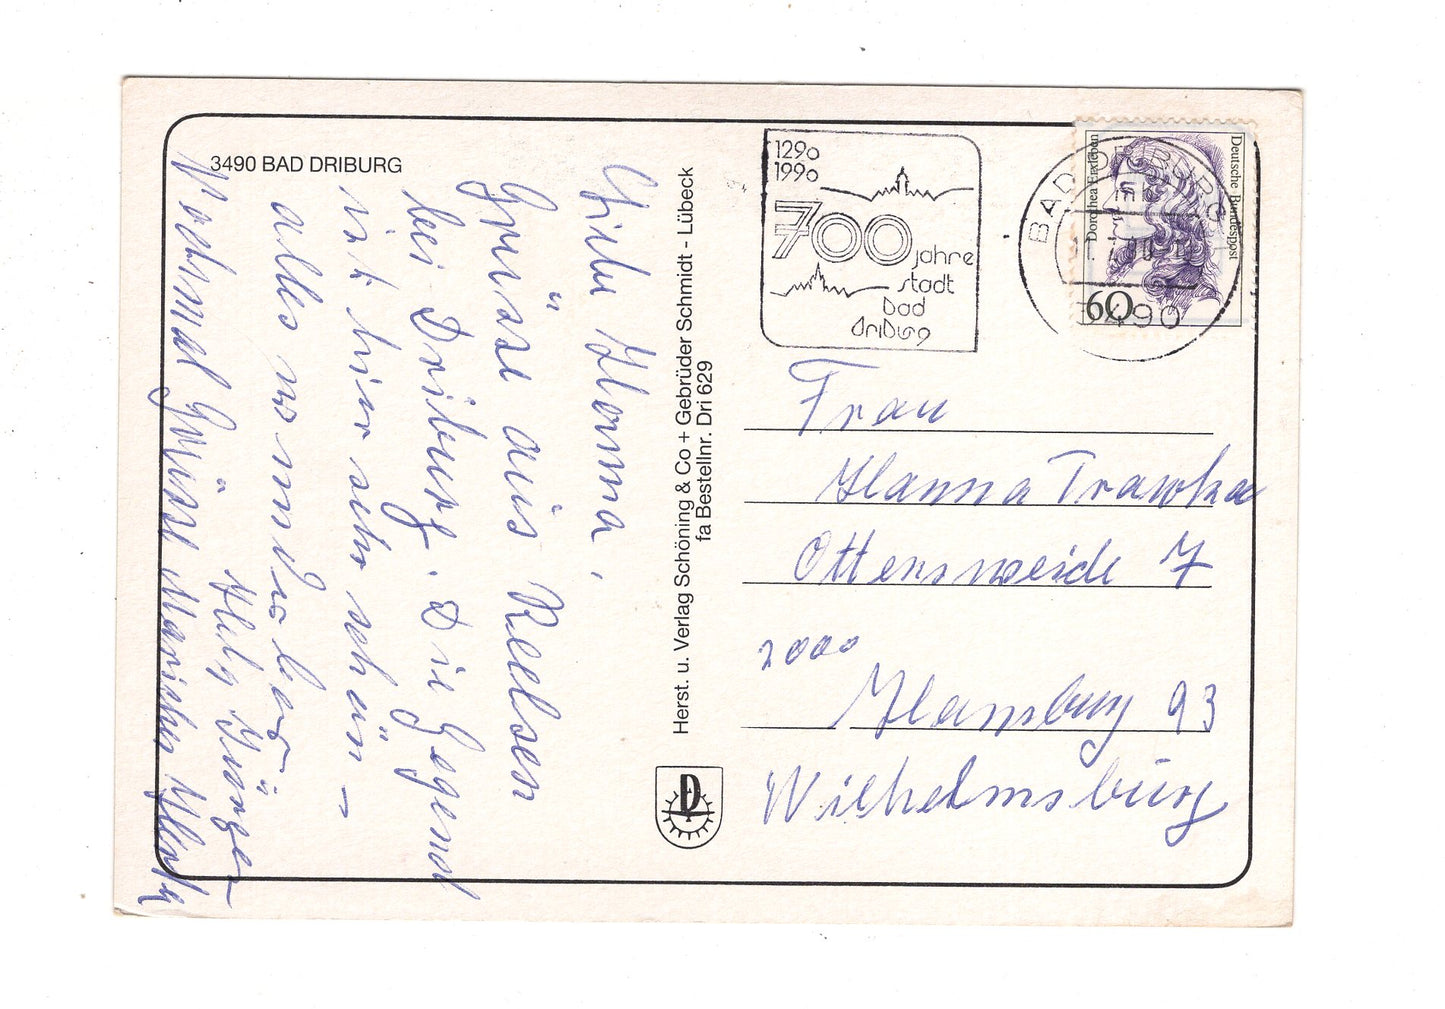 3490 BAD DRIBURG
Liebe Hanna,
Grüsse aus Reelsen
bei Driburg. Die Gegend
ist hier sehr schön –
alles
Nochmal Grüsse
Herst. u. Verlag Schöning & Co + Gebrüder Schmidt - Lübeck
fa Bestellnr. Dri 629
1290
1990
700
jahre
stadt
bad
driburg
BAD DRIBURG
3490
Dorothea Erxleben
Deutsche Bundespost
60
Frau
Hanna Trawka
Ottensweide 7
2000
Hamburg 93
Wilhelmsburg